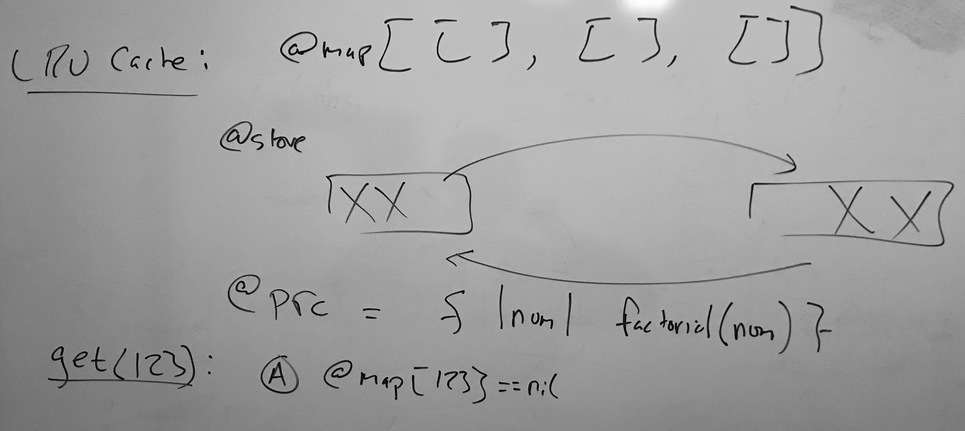 LRU Cache: @map[ [ ], [ ], [ ] ]
@store
XX XX
@prc = { |num| factorial(num) }
get(123): Ⓐ @map[123]==nil